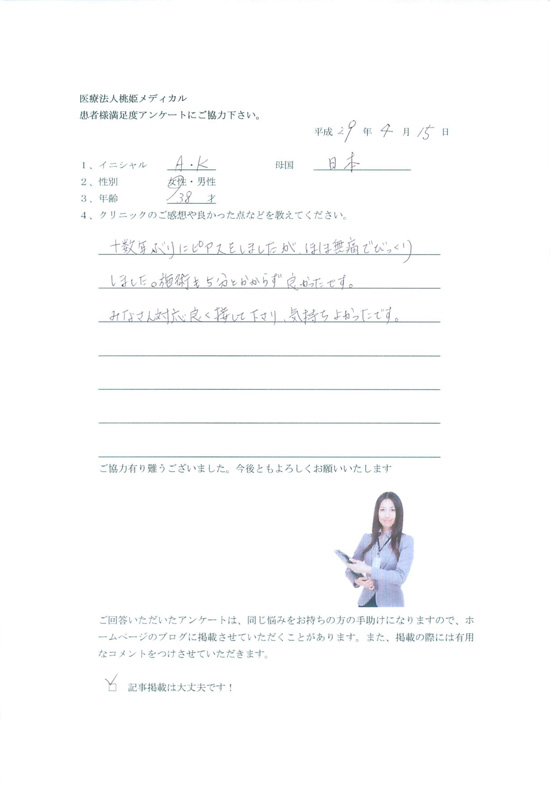 医療法人桃姫メディカル
患者様満足度アンケートにご協力下さい。
平成 29 年 4 月 15 日
1、イニシャル A・K 母国 日本
2、性別 女性・男性
3、年齢 38 才
4、クリニックのご感想や良かった点などを教えてください。
十数年ぶりにピアスをしましたが、ほぼ無痛でびっくり
しました。施術も5分とかからず良かったです。
みなさん対応良く接して下さり、気持ちよかったです。
ご協力有り難うございました。今後ともよろしくお願いいたします
ご回答いただいたアンケートは、同じ悩みをお持ちの方の手助けになりますので、ホ
ームページのブログに掲載させていただくことがあります。また、掲載の際には有用
なコメントをつけさせていただきます。
記事掲載は大丈夫です！